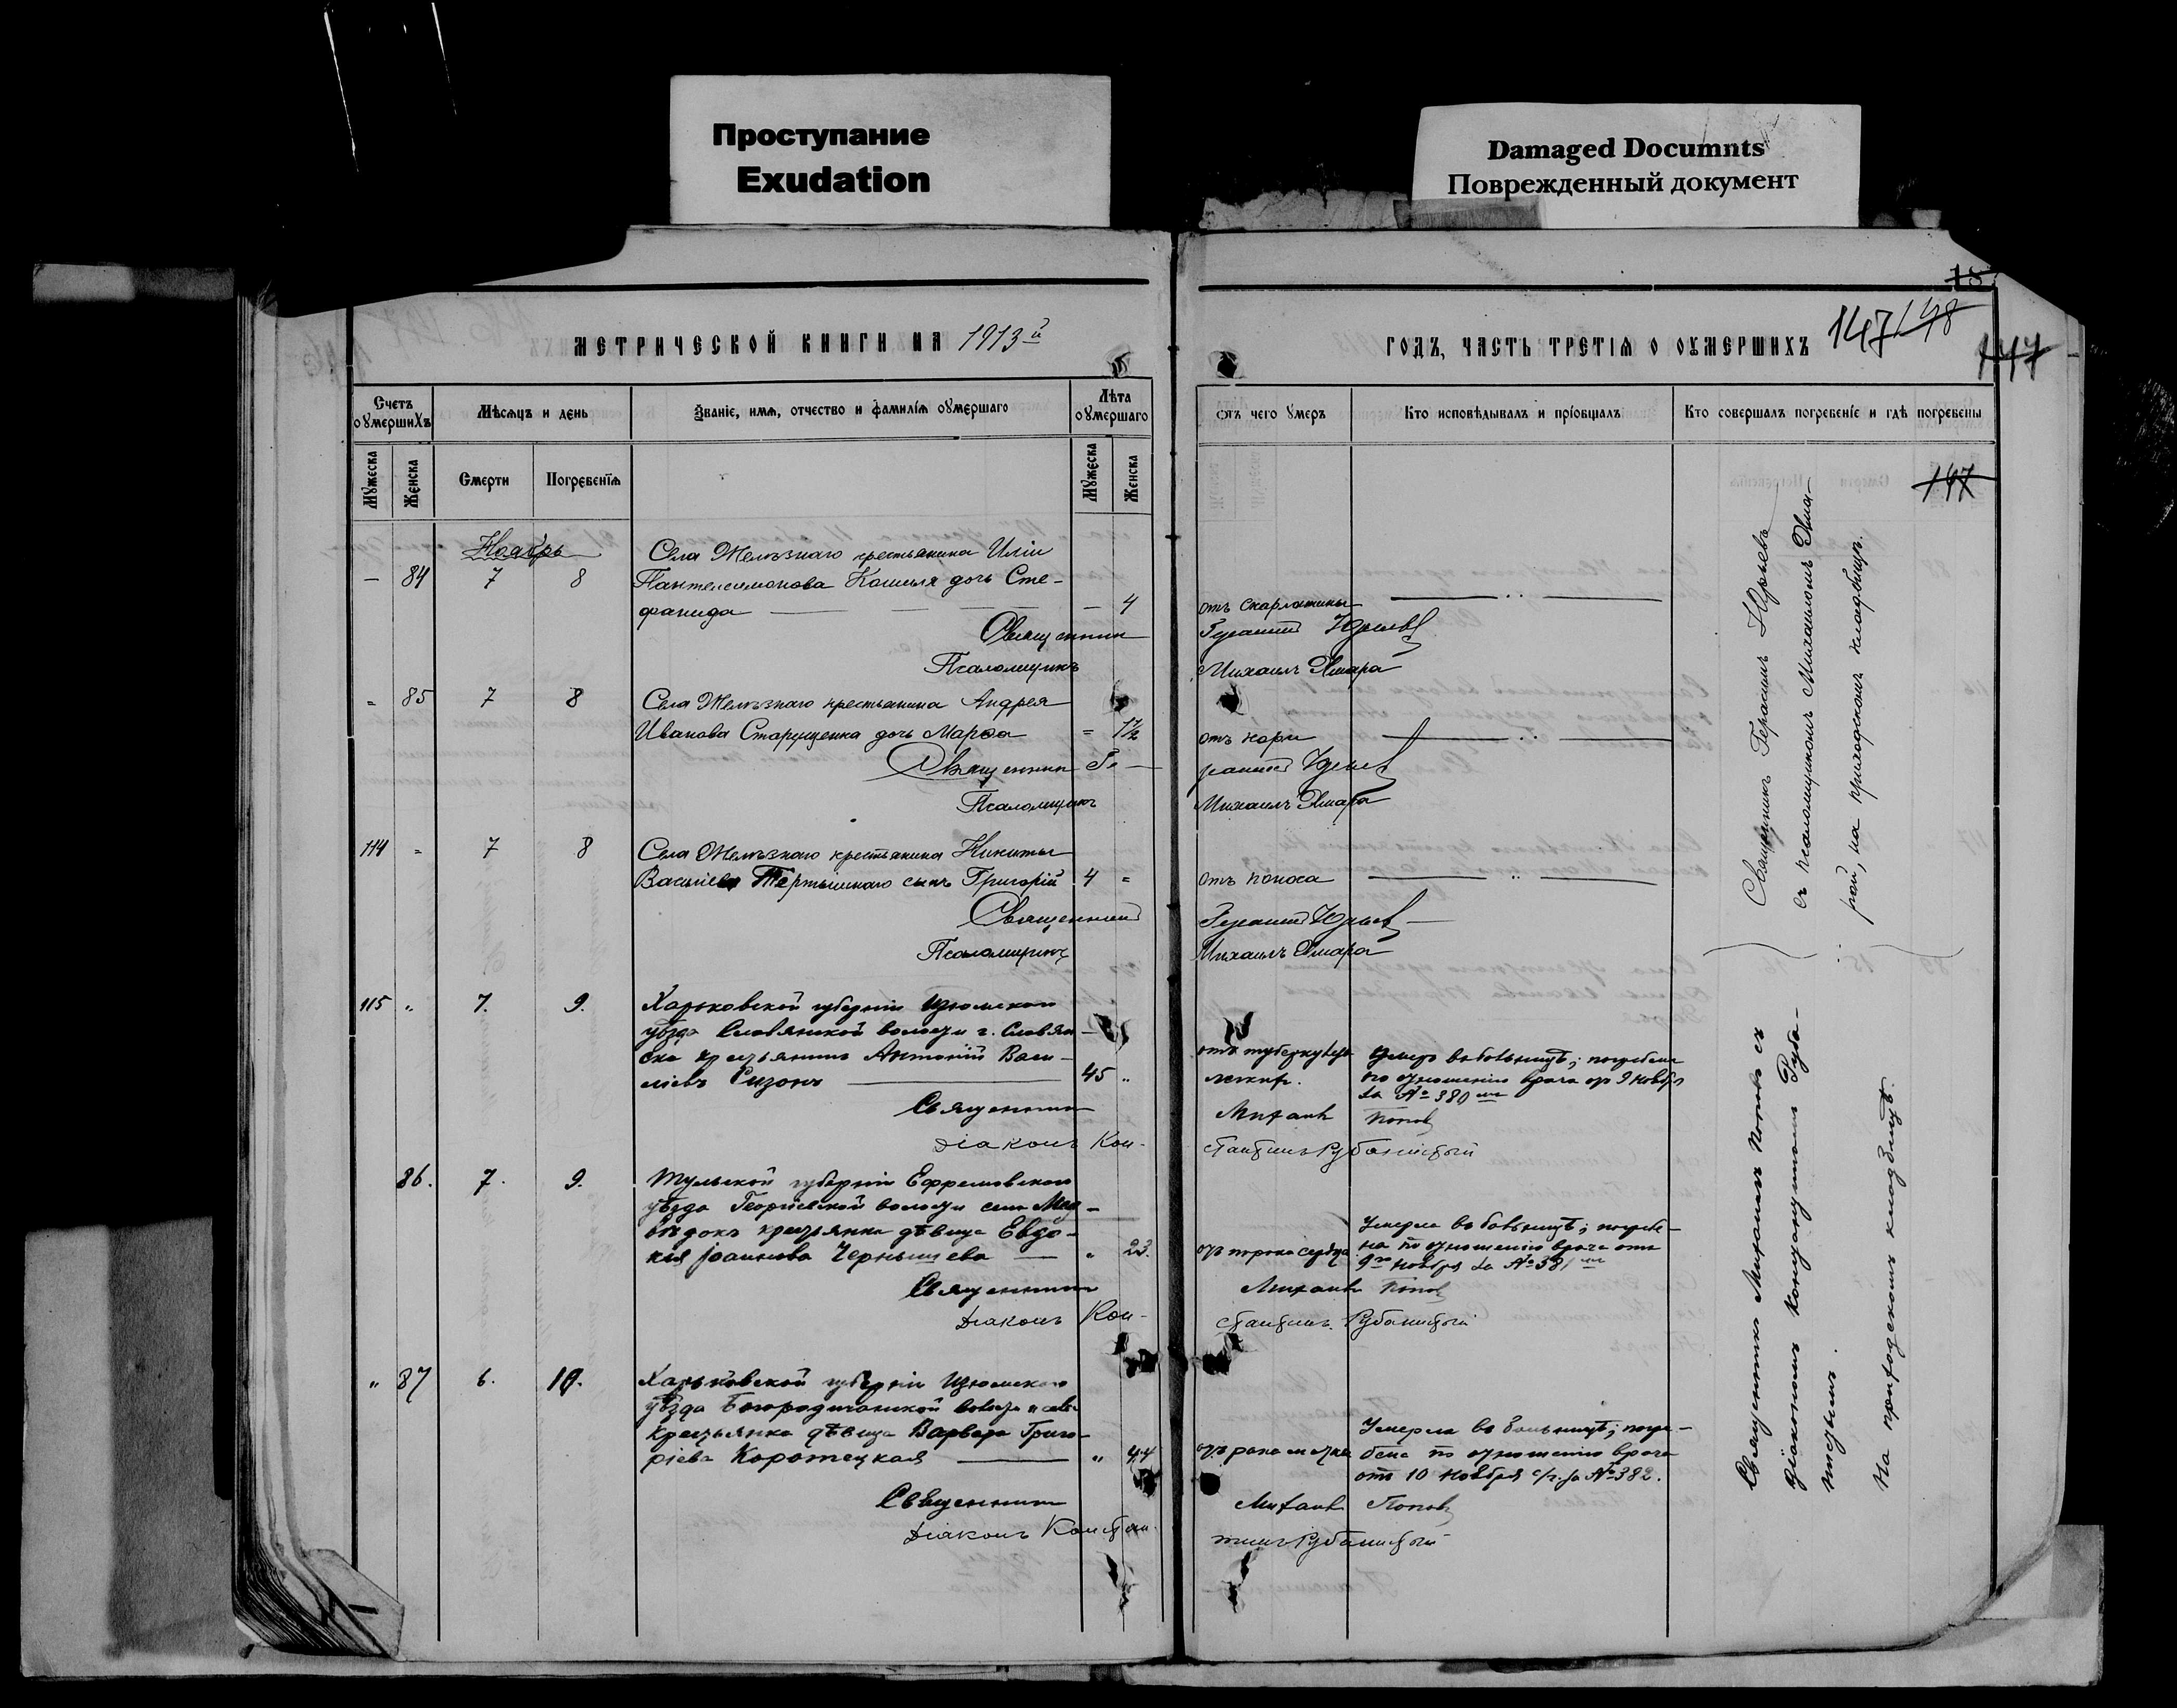 Проступание
Exudation
Damaged Documnts
Поврежденный документ
МЕТРИЧЕСКОЙ КНИГИ НА 1913й
Счетъ оумершихъ
Мѣсяцъ и день
Званіе, имя, отчество и фамилія оумершаго
Лѣта оумершаго
Мужеска
Женска
Смерти
Погребенія
Мужеска
Женска
Ноябрь
Села Желѣзнаго крестьянина Иліи
— 84 7 8 Пантелеимонова Кошеля дочь Сте-
фанида — 4
Священник
Псаломщикъ
" 85 7 8 Села Желѣзнаго крестьянина Андрея
Иванова Старущенка дочь Марѳа " 1½
Священник Ге-
Псаломщикъ
114 " 7 8 Села Желѣзнаго крестьянина Никиты
Васильева Тертышнаго сынъ Григорій 4 "
Священникъ
Псаломщикъ
115 " 7. 9. Харьковской губерніи Изюмскаго
уѣзда Славянской волости г. Славян-
ска крестьянинъ Антоній Васи-
ліевъ Сизонъ 45 "
Священникъ
Діаконъ Кон-
86. 7. 9. Тульской губерніи Ефремовскаго
уѣзда Георгіевской волости села Мед-
вѣдокъ крестьянка дѣвица Евдо-
кія Іоаннова Чернышева " 23.
Священникъ
Діаконъ Кон-
" 87 6. 10. Харьковской губерніи Изюмскаго
уѣзда Богородичанской волости
крестьянка дѣвица Варвара Григо-
ріева Коротецкая " 44
Священникъ
Діаконъ Констан-
18
147/148
147
ГОДЪ, ЧАСТЬ ТРЕТІЯ О ОУМЕРШИХЪ
отъ чего умеръ
Кто исповѣдывалъ и пріобщалъ
Кто совершалъ погребеніе и гдѣ погребены
147
отъ скарлатины
Герасимъ Юрьевъ
Михаилъ Хмара
отъ кори
расимъ Юрьевъ
Михаилъ Хмара
отъ поноса
Герасимъ Юрьевъ
Михаилъ Хмара
отъ туберкулеза
легких.
Умеръ въ больницѣ; погребенъ
по отношенію врача от 9 ноября
за № 380
Михаилъ Поповъ
стантинъ Рубанистый
от порока сердца
Умерла въ больницѣ; погребе-
на по отношенію врача отъ
9го ноября за № 381
Михаилъ Поповъ
стантинъ Рубанистый
от рака
Умерла въ больницѣ; погре-
бена по отношенію врача
отъ 10 ноября с/г. за № 382.
Михаилъ Поповъ
тинъ Рубанистый
Священникъ Герасимъ Юрьевъ
съ псаломщикомъ Михаиломъ Хма-
рой, на приходскомъ кладбищѣ.
Священникъ Михаилъ Поповъ съ
діакономъ Константиномъ Руба-
нистымъ.
На приходскомъ кладбищѣ.